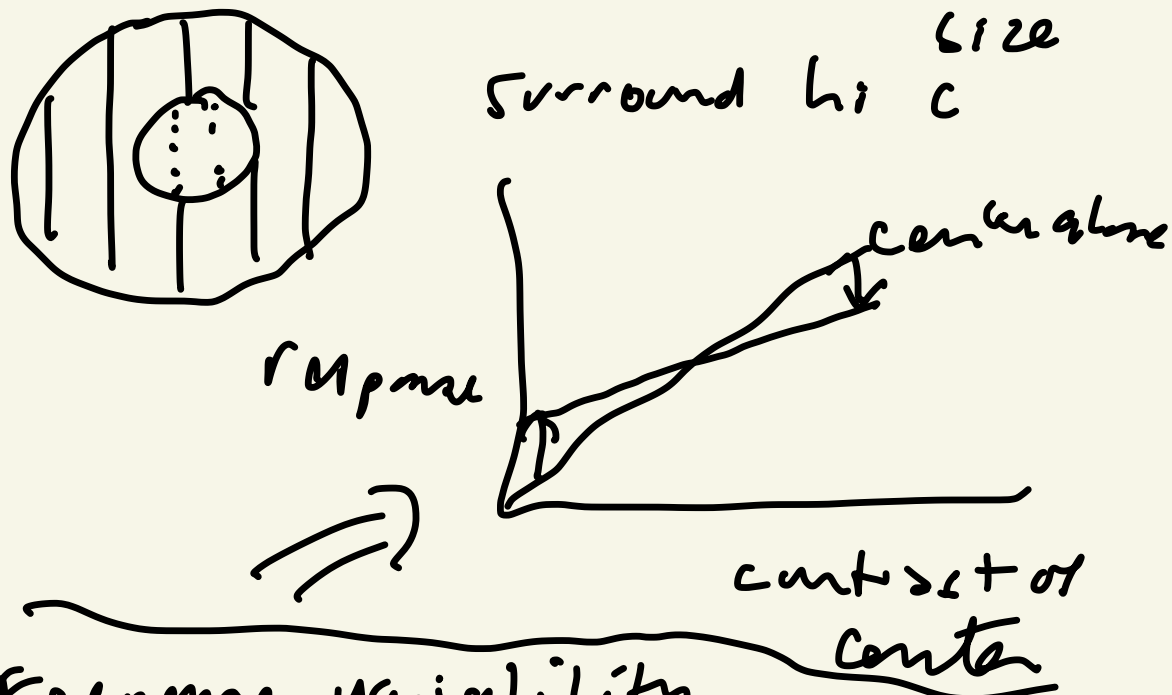 size
surround hi c
center alone
response
contrast of
center
response variability